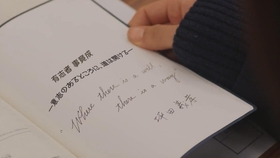 有志者 事竟成
―意志のあるところに、道は開ける―
Where there is a will,
there is a way.